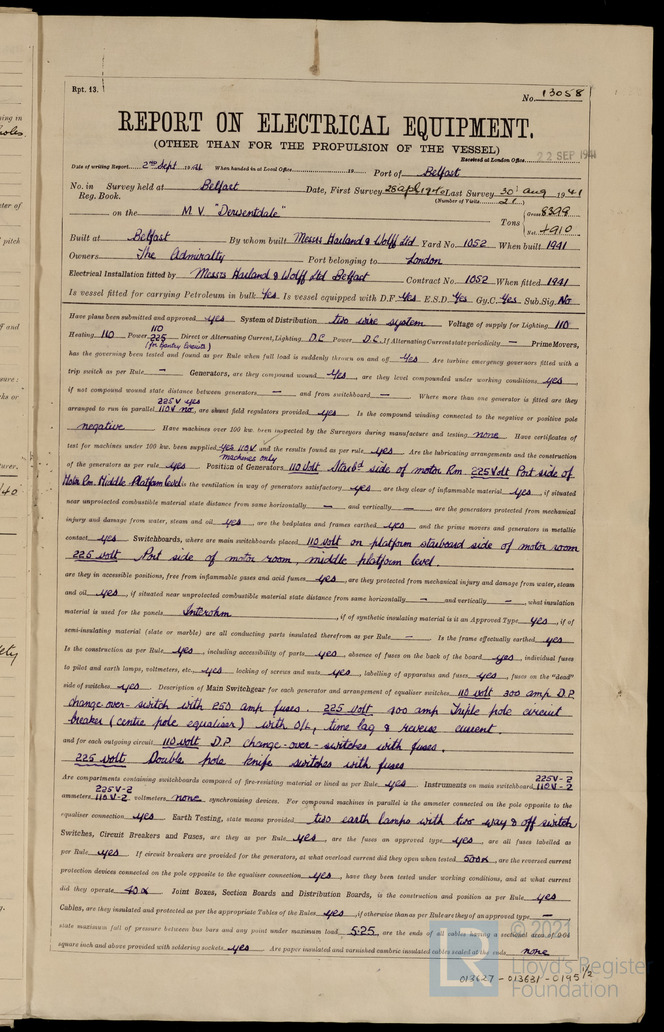 Rpt. 13.
No. 13058
REPORT ON ELECTRICAL EQUIPMENT.
(OTHER THAN FOR THE PROPULSION OF THE VESSEL)
Received at London Office 22 SEP 1941
Date of writing Report 2nd Sept 1941 When handed in at Local Office 19 Port of Belfast
No. in Survey held at Belfast Date, First Survey 25 Apl 1940 Last Survey 30 Aug 1941
Reg. Book. (Number of Visits 21)
on the M.V. "Derwentdale" Tons Gross 8399 Net 4910
Built at Belfast By whom built Messrs Harland & Wolff Ltd Yard No. 1052 When built 1941
Owners The Admiralty Port belonging to London
Electrical Installation fitted by Messrs Harland & Wolff Ltd Belfast Contract No. 1052 When fitted 1941
Is vessel fitted for carrying Petroleum in bulk Yes Is vessel equipped with D.F. Yes E.S.D. Yes Gy.C. Yes Sub.Sig. No
Have plans been submitted and approved yes System of Distribution two wire system Voltage of supply for Lighting 110
Heating 110 Power 110 225 (for Gantry circuits) Direct or Alternating Current, Lighting D.C Power D.C. If Alternating Current state periodicity — Prime Movers,
has the governing been tested and found as per Rule when full load is suddenly thrown on and off Yes Are turbine emergency governors fitted with a
trip switch as per Rule — Generators, are they compound wound Yes, are they level compounded under working conditions yes,
if not compound wound state distance between generators — and from switchboard — Where more than one generator is fitted are they
arranged to run in parallel 225V yes 110V no, are shunt field regulators provided yes Is the compound winding connected to the negative or positive pole
negative Have machines over 100 kw. been inspected by the Surveyors during manufacture and testing none Have certificates of
test for machines under 100 kw. been supplied yes 110V machines only and the results found as per rule yes Are the lubricating arrangements and the construction
of the generators as per rule yes Position of Generators 110 Volt Starbd side of motor Rm. 225 Volt Port side of
Motor Rm. Middle Platform level is the ventilation in way of generators satisfactory yes are they clear of inflammable material yes, if situated
near unprotected combustible material state distance from same horizontally — and vertically —, are the generators protected from mechanical
injury and damage from water, steam and oil yes, are the bedplates and frames earthed yes and the prime movers and generators in metallic
contact yes Switchboards, where are main switchboards placed 110 volt on platform starboard side of motor room
225 volt Port side of motor room, middle platform level.
are they in accessible positions, free from inflammable gases and acid fumes yes, are they protected from mechanical injury and damage from water, steam
and oil yes, if situated near unprotected combustible material state distance from same horizontally — and vertically —, what insulation
material is used for the panels Interohm, if of synthetic insulating material is it an Approved Type yes, if of
semi-insulating material (slate or marble) are all conducting parts insulated therefrom as per Rule — Is the frame effectually earthed yes
Is the construction as per Rule yes, including accessibility of parts yes, absence of fuses on the back of the board yes, individual fuses
to pilot and earth lamps, voltmeters, etc. yes locking of screws and nuts yes, labelling of apparatus and fuses yes, fuses on the "dead"
side of switches yes Description of Main Switchgear for each generator and arrangement of equaliser switches 110 volt 300 amp D.P
change-over-switch with 250 amp fuses. 225 volt 400 amp Triple pole circuit
breaker (centre pole equaliser) with O/L, time lag & reverse current.
and for each outgoing circuit 110 volt D.P change-over-switches with fuses.
225 volt Double pole knife switches with fuses
Are compartments containing switchboards composed of fire-resisting material or lined as per Rule yes Instruments on main switchboard 225V-2 110V-2
ammeters 225V-2 110V-2 voltmeters none synchronising devices. For compound machines in parallel is the ammeter connected on the pole opposite to the
equaliser connection yes Earth Testing, state means provided two earth lamps with two way & off switch
Switches, Circuit Breakers and Fuses, are they as per Rule yes, are the fuses an approved type yes, are all fuses labelled as
per Rule yes If circuit breakers are provided for the generators, at what overload current did they open when tested 500a, are the reversed current
protection devices connected on the pole opposite to the equaliser connection yes, have they been tested under working conditions, and at what current
did they operate 40a Joint Boxes, Section Boards and Distribution Boards, is the construction and position as per Rule yes
Cables, are they insulated and protected as per the appropriate Tables of the Rules yes, if otherwise than as per Rule are they of an approved type —
state maximum fall of pressure between bus bars and any point under maximum load 5.25, are the ends of all cables having a sectional area of 0.04
square inch and above provided with soldering sockets yes Are paper insulated and varnished cambric insulated cables sealed at the ends none
© 2021
LR Lloyd's Register
Foundation
013627 - 013631 - 0195 1/2